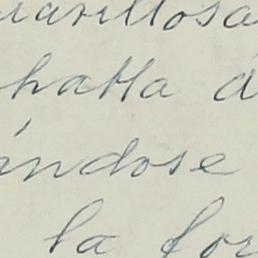 aravillosa
halla d
ándose
la for